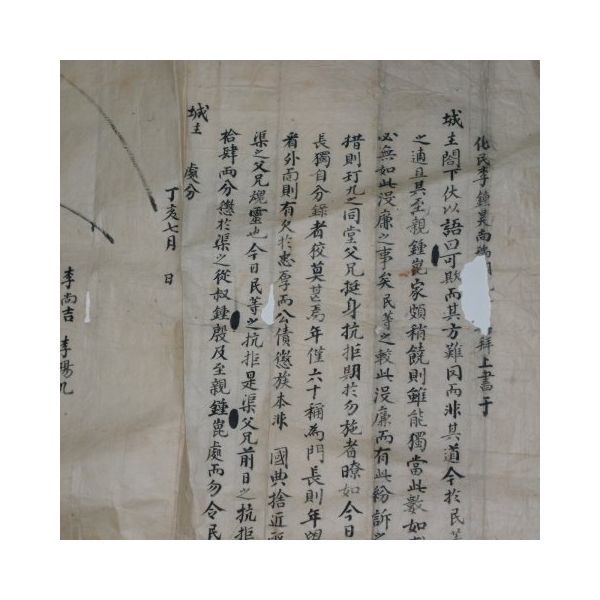 化民李鍾 尙 上書于
城主閤下伏以語曰可欺而其方難罔而非其道今於民等
之適且其至親鍾崑家頗稍饒則雖能獨當此數如
必無如此沒廉之事矣民等之較此沒廉而有此紛訴之
措則 九之同堂父兄挺身抗拒期於勿施者暸如今日
長獨自分錄者狡莫甚焉年僅六十稱爲門長則年
看外面則有欠於惠厚而公債懲族本非 國典捨近而
渠之父兄 靈也今日民等之抗拒是渠父兄前日之抗拒
拾肆兩分懲於渠之從叔鍾殷及至親鍾崑處而勿令民
城主 處分
丁亥七月 日
李尙吉 李陽九